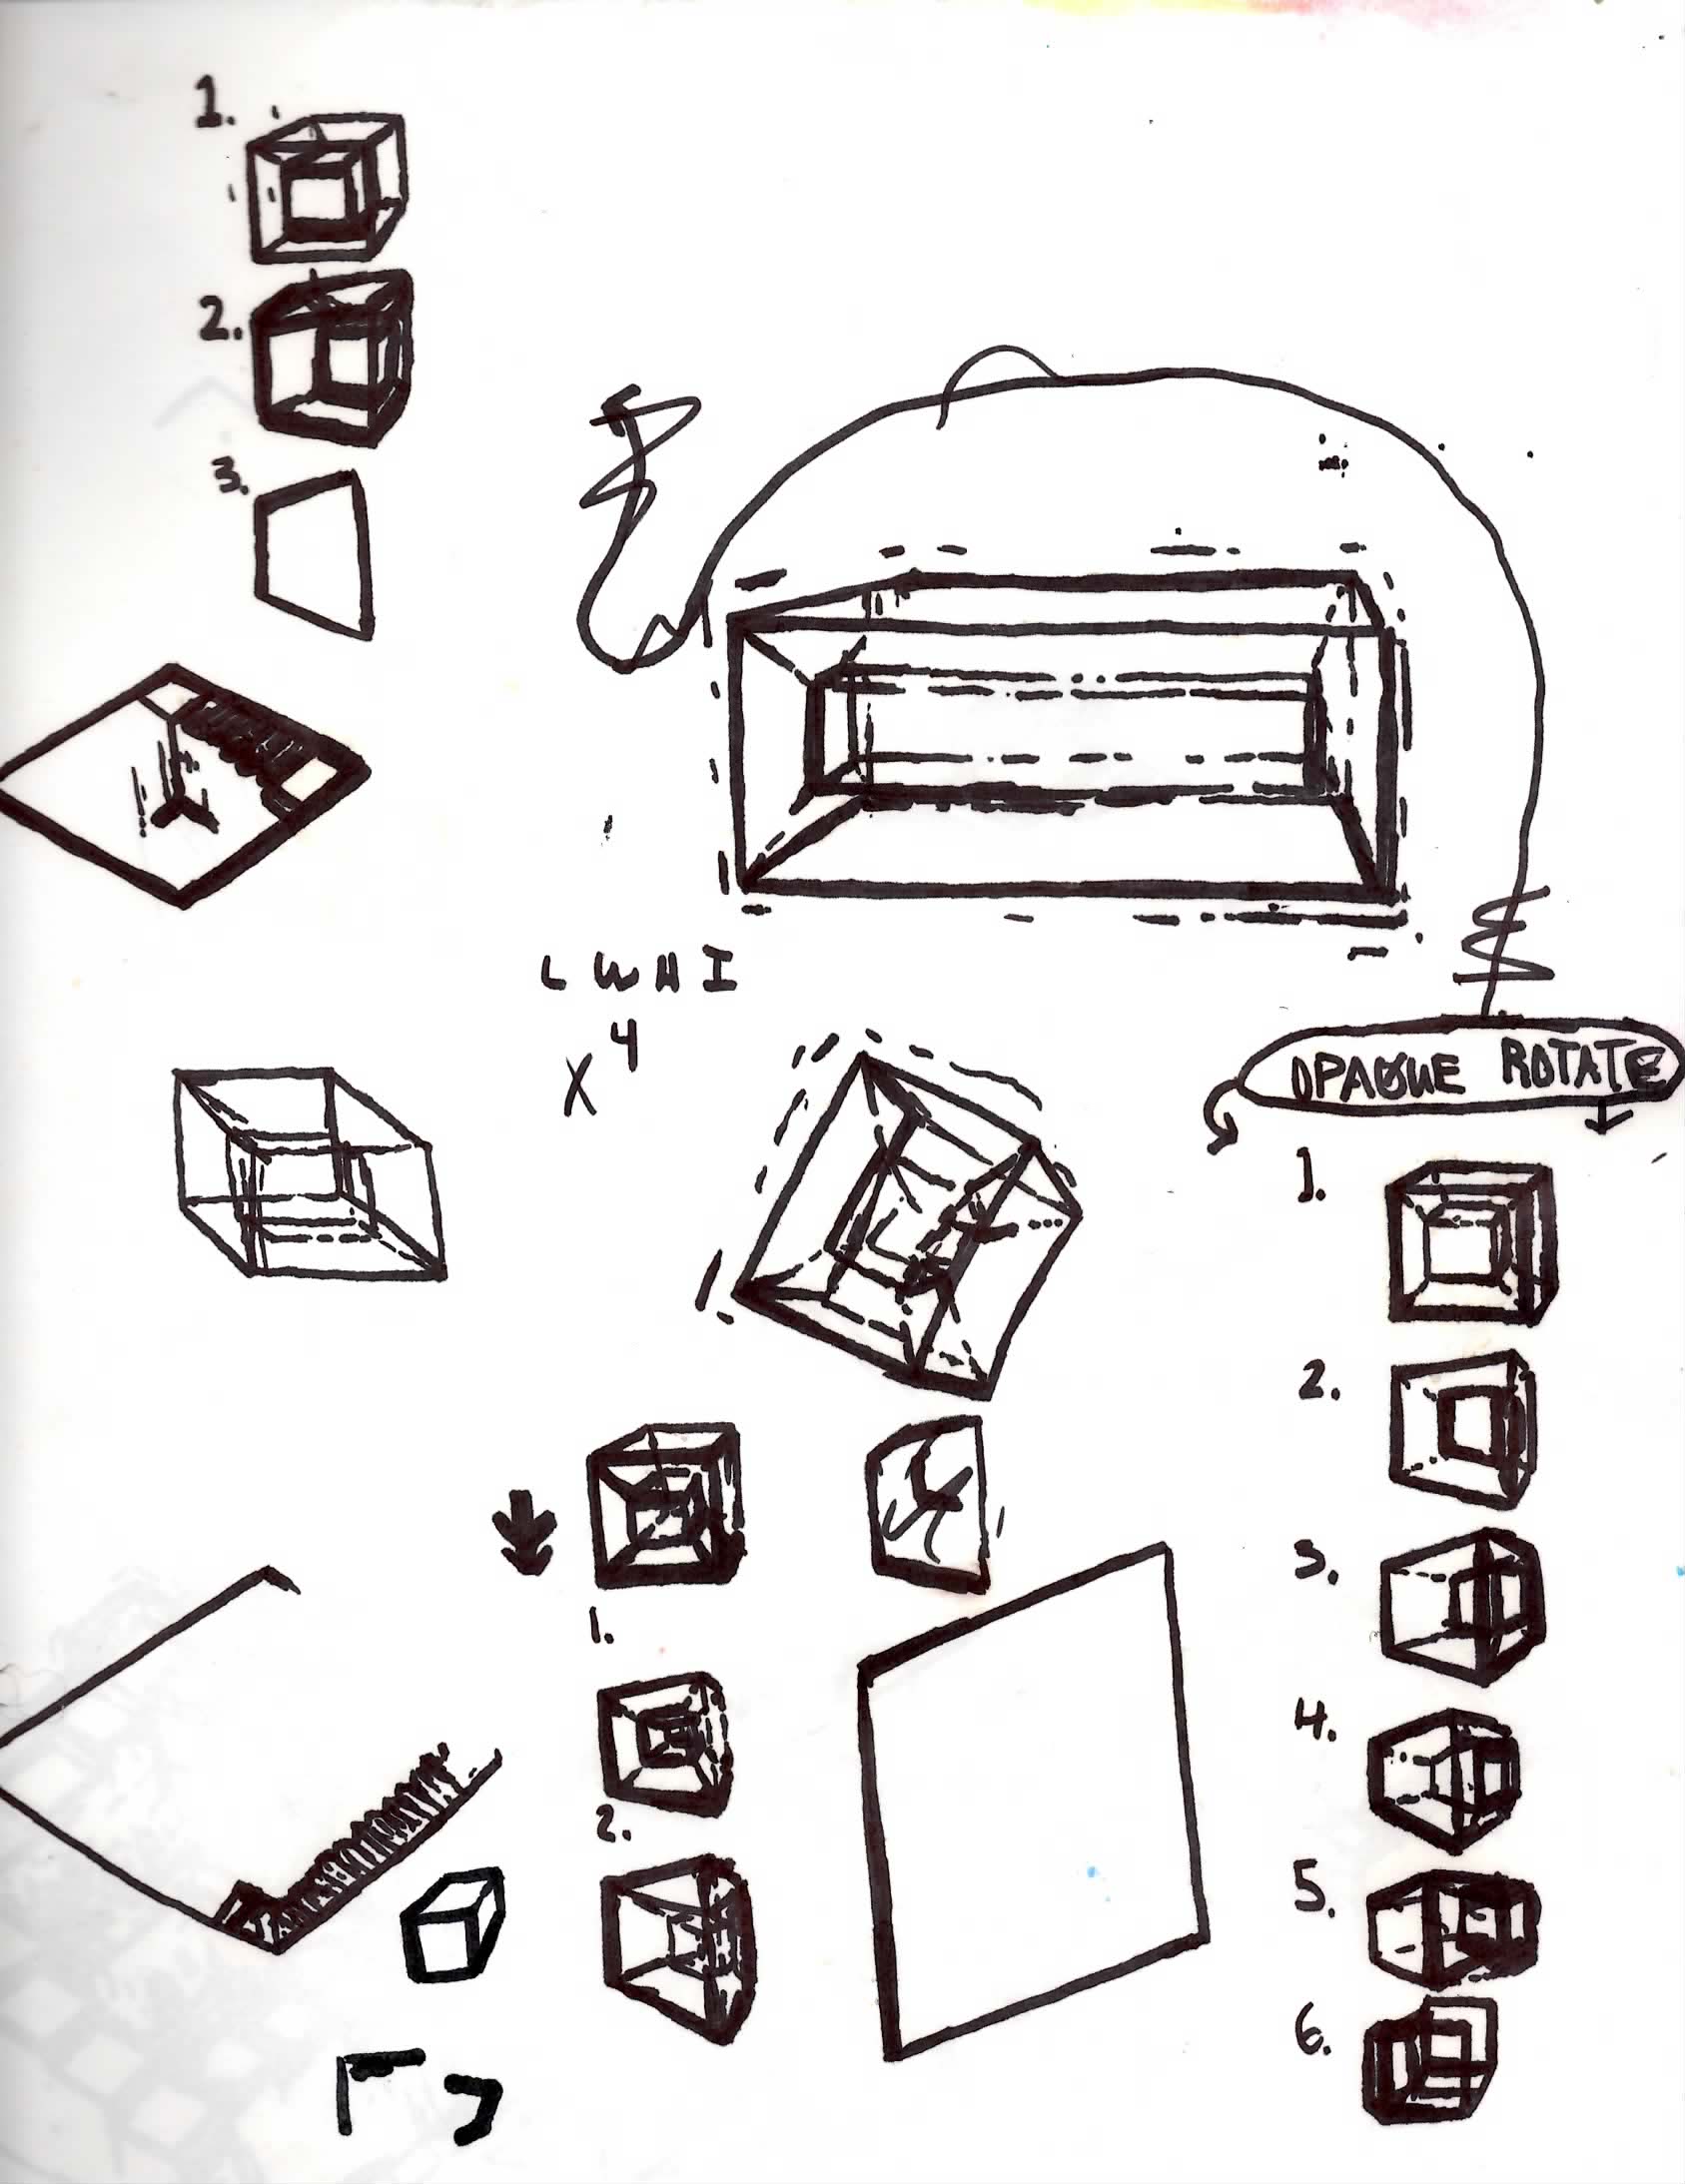 1.
2.
3.
L W H I
X 4
OPAQUE ROTATE
1.
2.
3.
4.
5.
6.
1.
2.